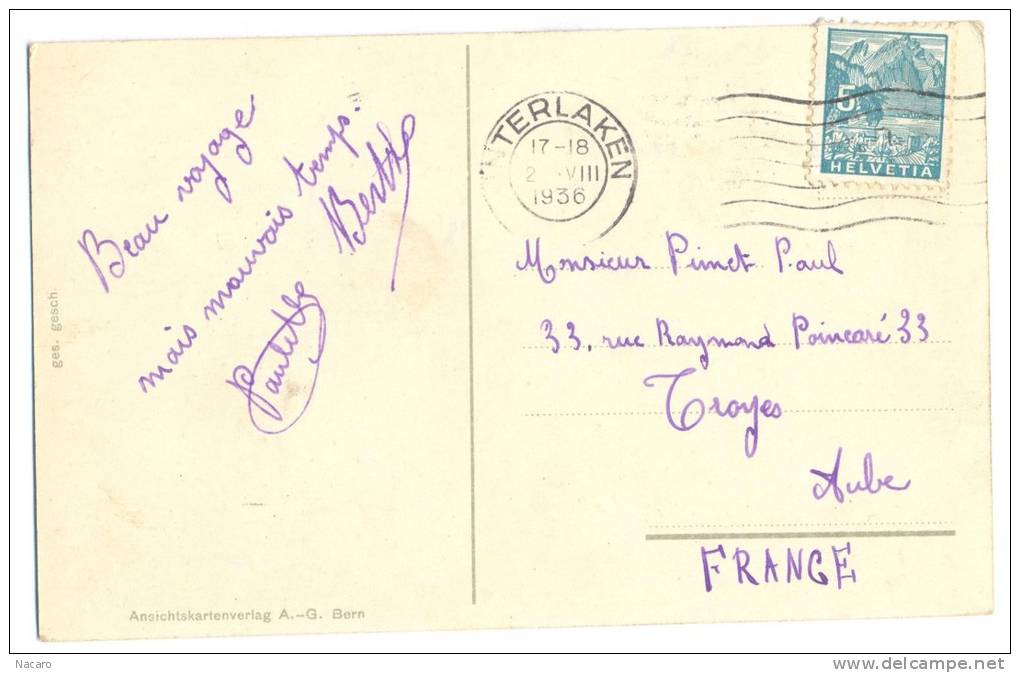 Beau voyage
mais mauvais temps.
Paulette
Berthe
ges. gesch.
Ansichtskartenverlag A.-G. Bern
INTERLAKEN
17-18
VIII
1936
5
HELVETIA
Monsieur Pimet Paul
33, rue Raymond Poincaré 33
Troyes
Aube
FRANCE
Nacaro
http://www.delcampe.net